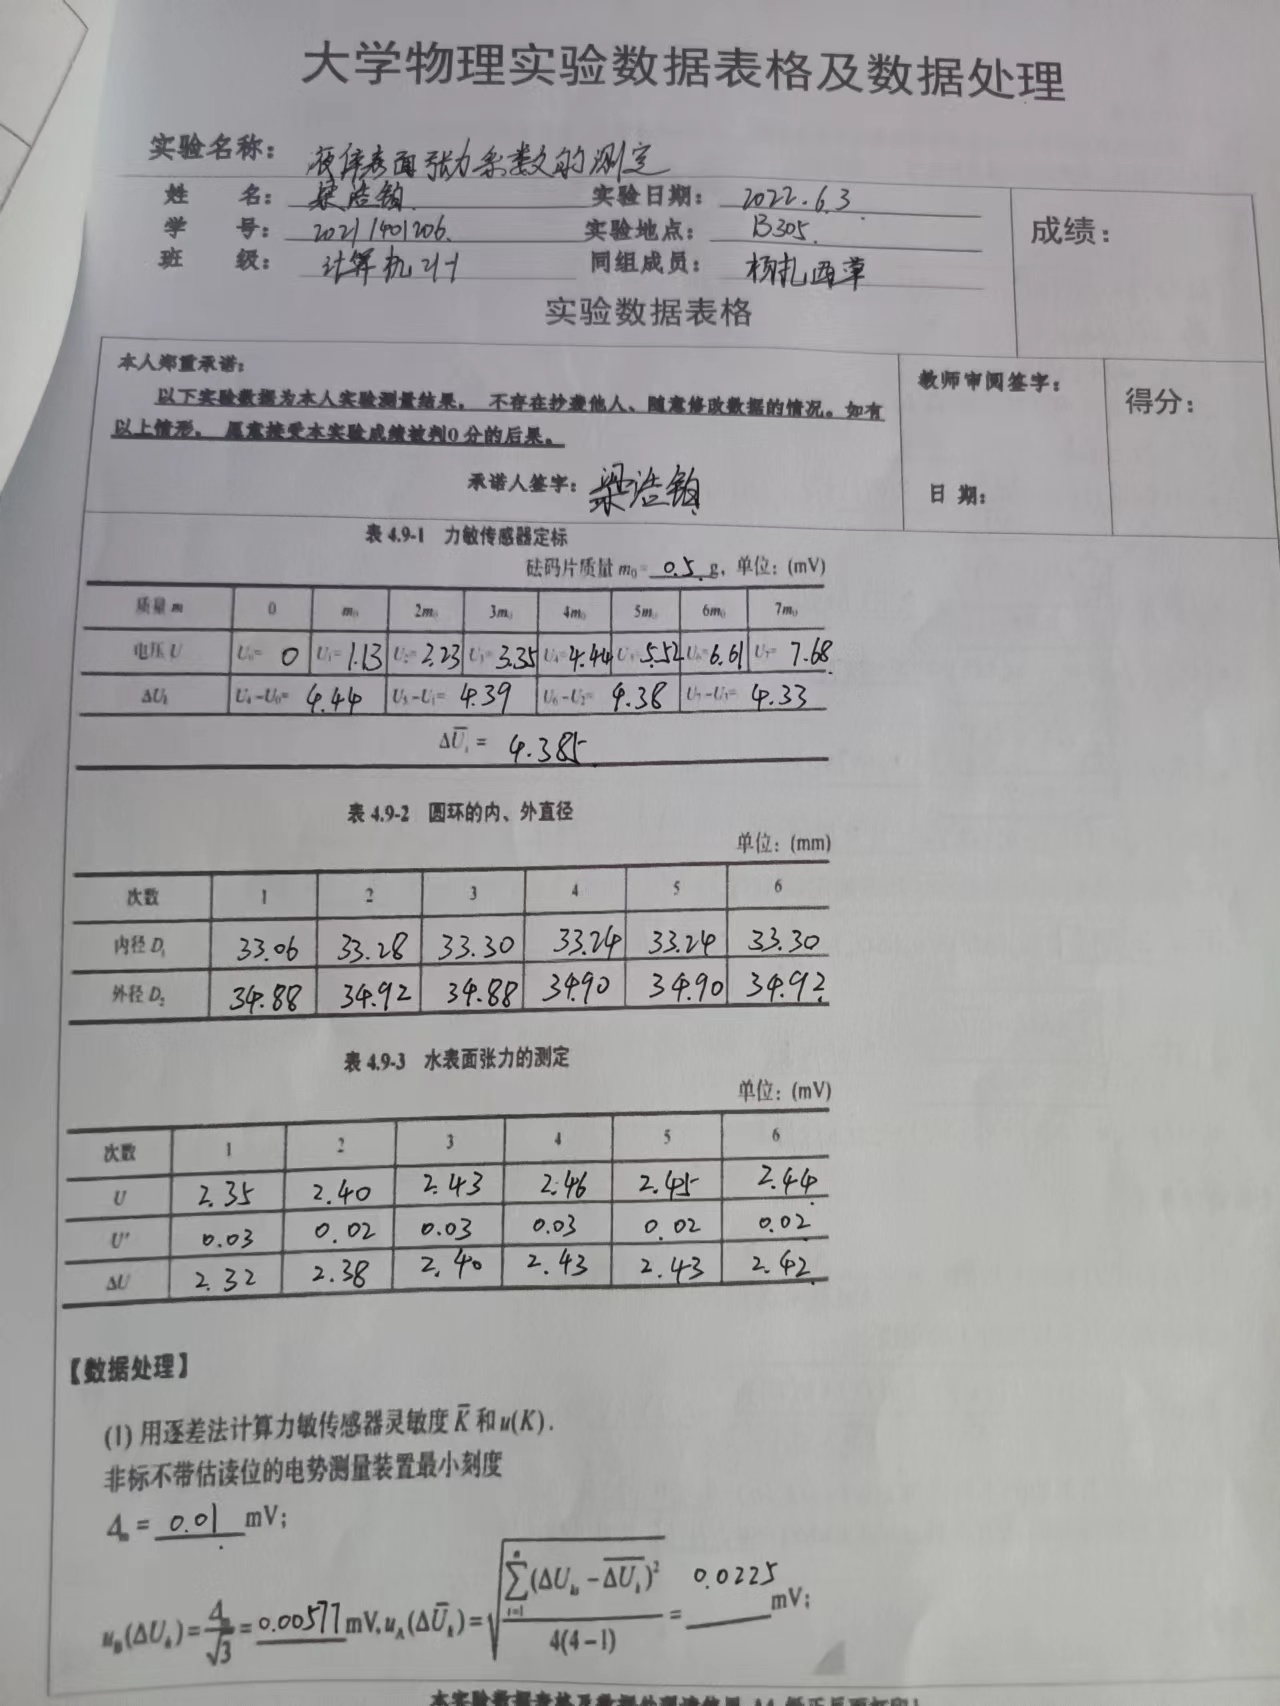 大学物理实验数据表格及数据处理
实验名称： 液体表面张力系数的测定
姓 名： 梁浩铂 实验日期： 2022.6.3.
学 号： 2021401206. 实验地点： B305.
班 级： 计算机21-1 同组成员： 杨扎西草
成绩：
实验数据表格
本人郑重承诺：
以下实验数据为本人实验测量结果，不存在抄袭他人、随意修改数据的情况。如有
以上情形，愿意接受本实验成绩被判0分的后果。
承诺人签字： 梁浩铂
教师审阅签字：
日 期：
得分：
表 4.9-1 力敏传感器定标
砝码片质量 m₀= 0.5 g，单位：(mV)
质量 m 0 m₀ 2m₀ 3m₀ 4m₀ 5m₀ 6m₀ 7m₀
电压 U U₀= 0 U₁= 1.13 U₂= 2.23 U₃= 3.35 U₄= 4.44 U₅= 5.52 U₆= 6.61 U₇= 7.68
ΔUᵢ U₄-U₀= 4.44 U₅-U₁= 4.39 U₆-U₂= 4.38 U₇-U₃= 4.33
ΔU̅ᵢ = 4.385
表 4.9-2 圆环的内、外直径
单位：(mm)
次数 1 2 3 4 5 6
内径 D₁ 33.06 33.28 33.30 33.24 33.24 33.30
外径 D₂ 34.88 34.92 34.88 34.90 34.90 34.92
表 4.9-3 水表面张力的测定
单位：(mV)
次数 1 2 3 4 5 6
U 2.35 2.40 2.43 2.46 2.45 2.44
U' 0.03 0.02 0.03 0.03 0.02 0.02
ΔU 2.32 2.38 2.40 2.43 2.43 2.42
【数据处理】
(1) 用逐差法计算力敏传感器灵敏度 K̅ 和 u(K).
非标不带估读位的电势测量装置最小刻度
Δₘ = 0.01 mV;
u_B(ΔUₖ) = Δₘ/√3 = 0.00577 mV, u_A(ΔU̅ₖ) = √(∑(ΔUₖᵢ - ΔU̅ₖ)²/4(4-1)) = 0.0225 mV;